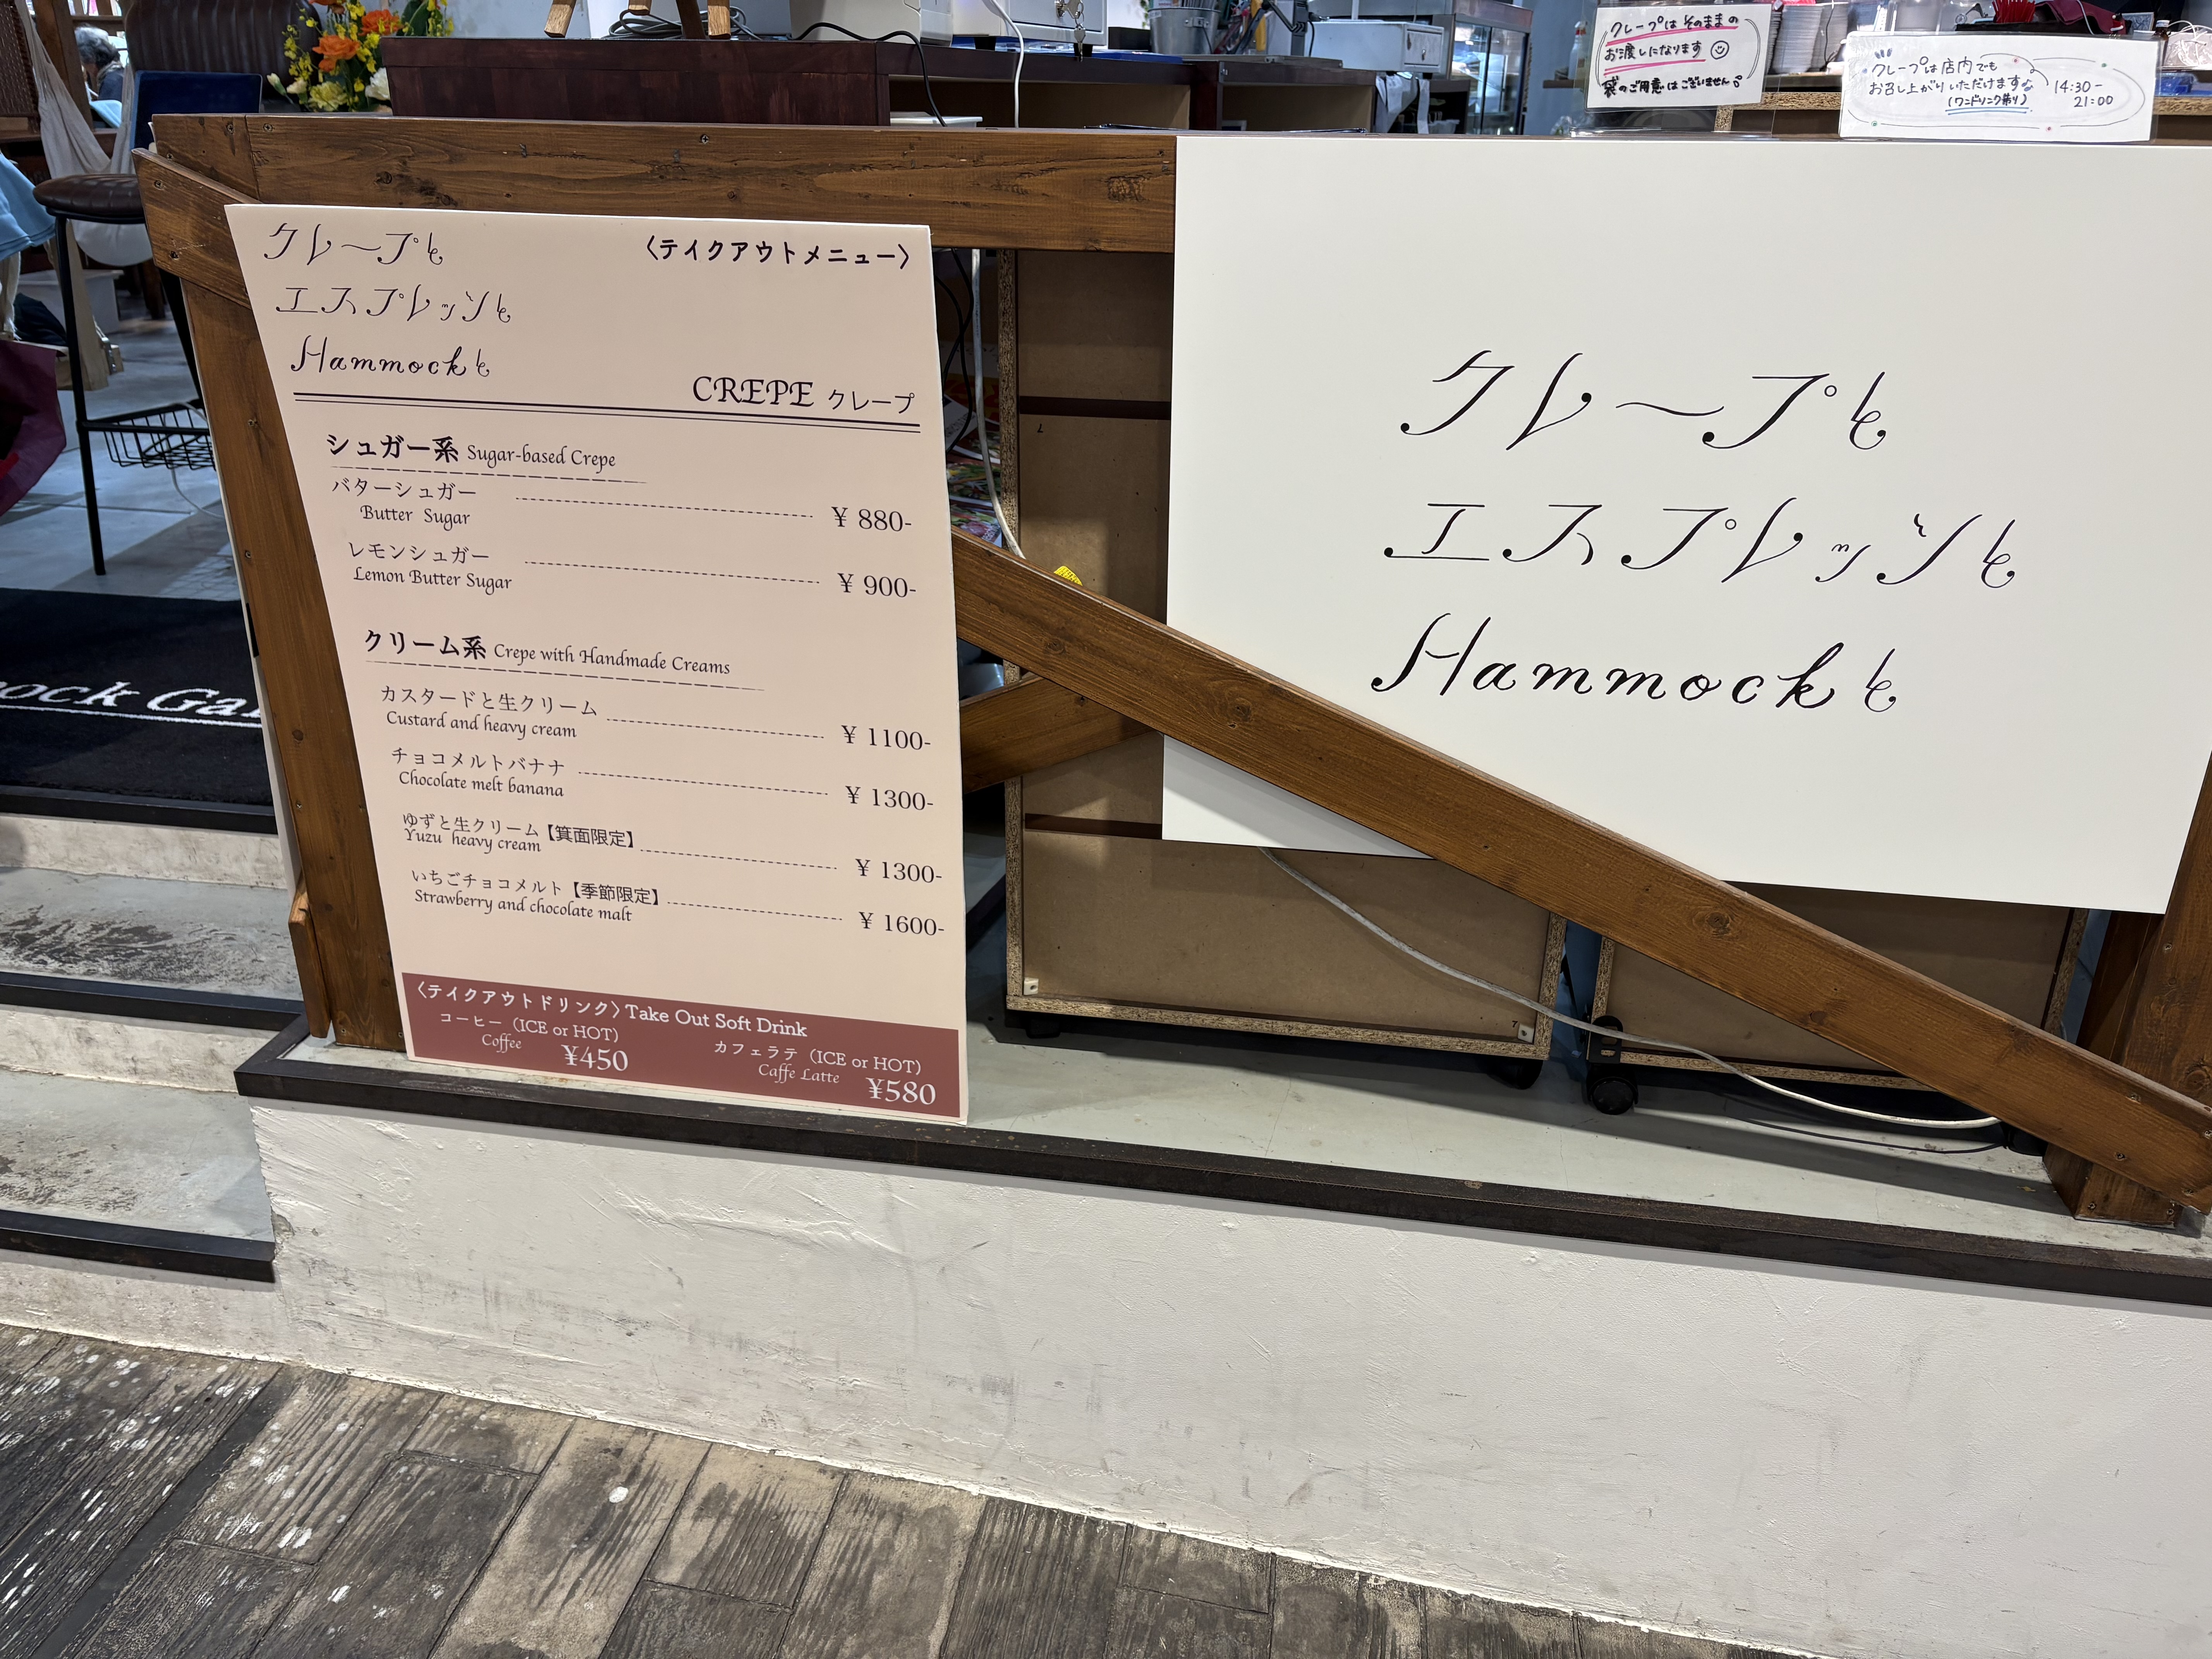 クレープはそのままの
お渡しになります
袋のご用意はございません
クレープは店内でも
お召し上がりいただけます
(ワンドリンク制り)
14:30-
21:00
クレープと
エスプレッソと
Hammockと
〈テイクアウトメニュー〉
CREPE クレープ
シュガー系 Sugar-based Crepe
バターシュガー
Butter Sugar
¥ 880-
レモンシュガー
Lemon Butter Sugar
¥ 900-
クリーム系 Crepe with Handmade Creams
カスタードと生クリーム
Custard and heavy cream
¥ 1100-
チョコメルトバナナ
Chocolate melt banana
¥ 1300-
ゆずと生クリーム【箕面限定】
Yuzu heavy cream
¥ 1300-
いちごチョコメルト【季節限定】
Strawberry and chocolate malt
¥ 1600-
〈テイクアウトドリンク〉Take Out Soft Drink
コーヒー（ICE or HOT)
Coffee
¥450
カフェラテ（ICE or HOT)
Caffe Latte
¥580
クレープと
エスプレッソと
Hammockと
ock Ga